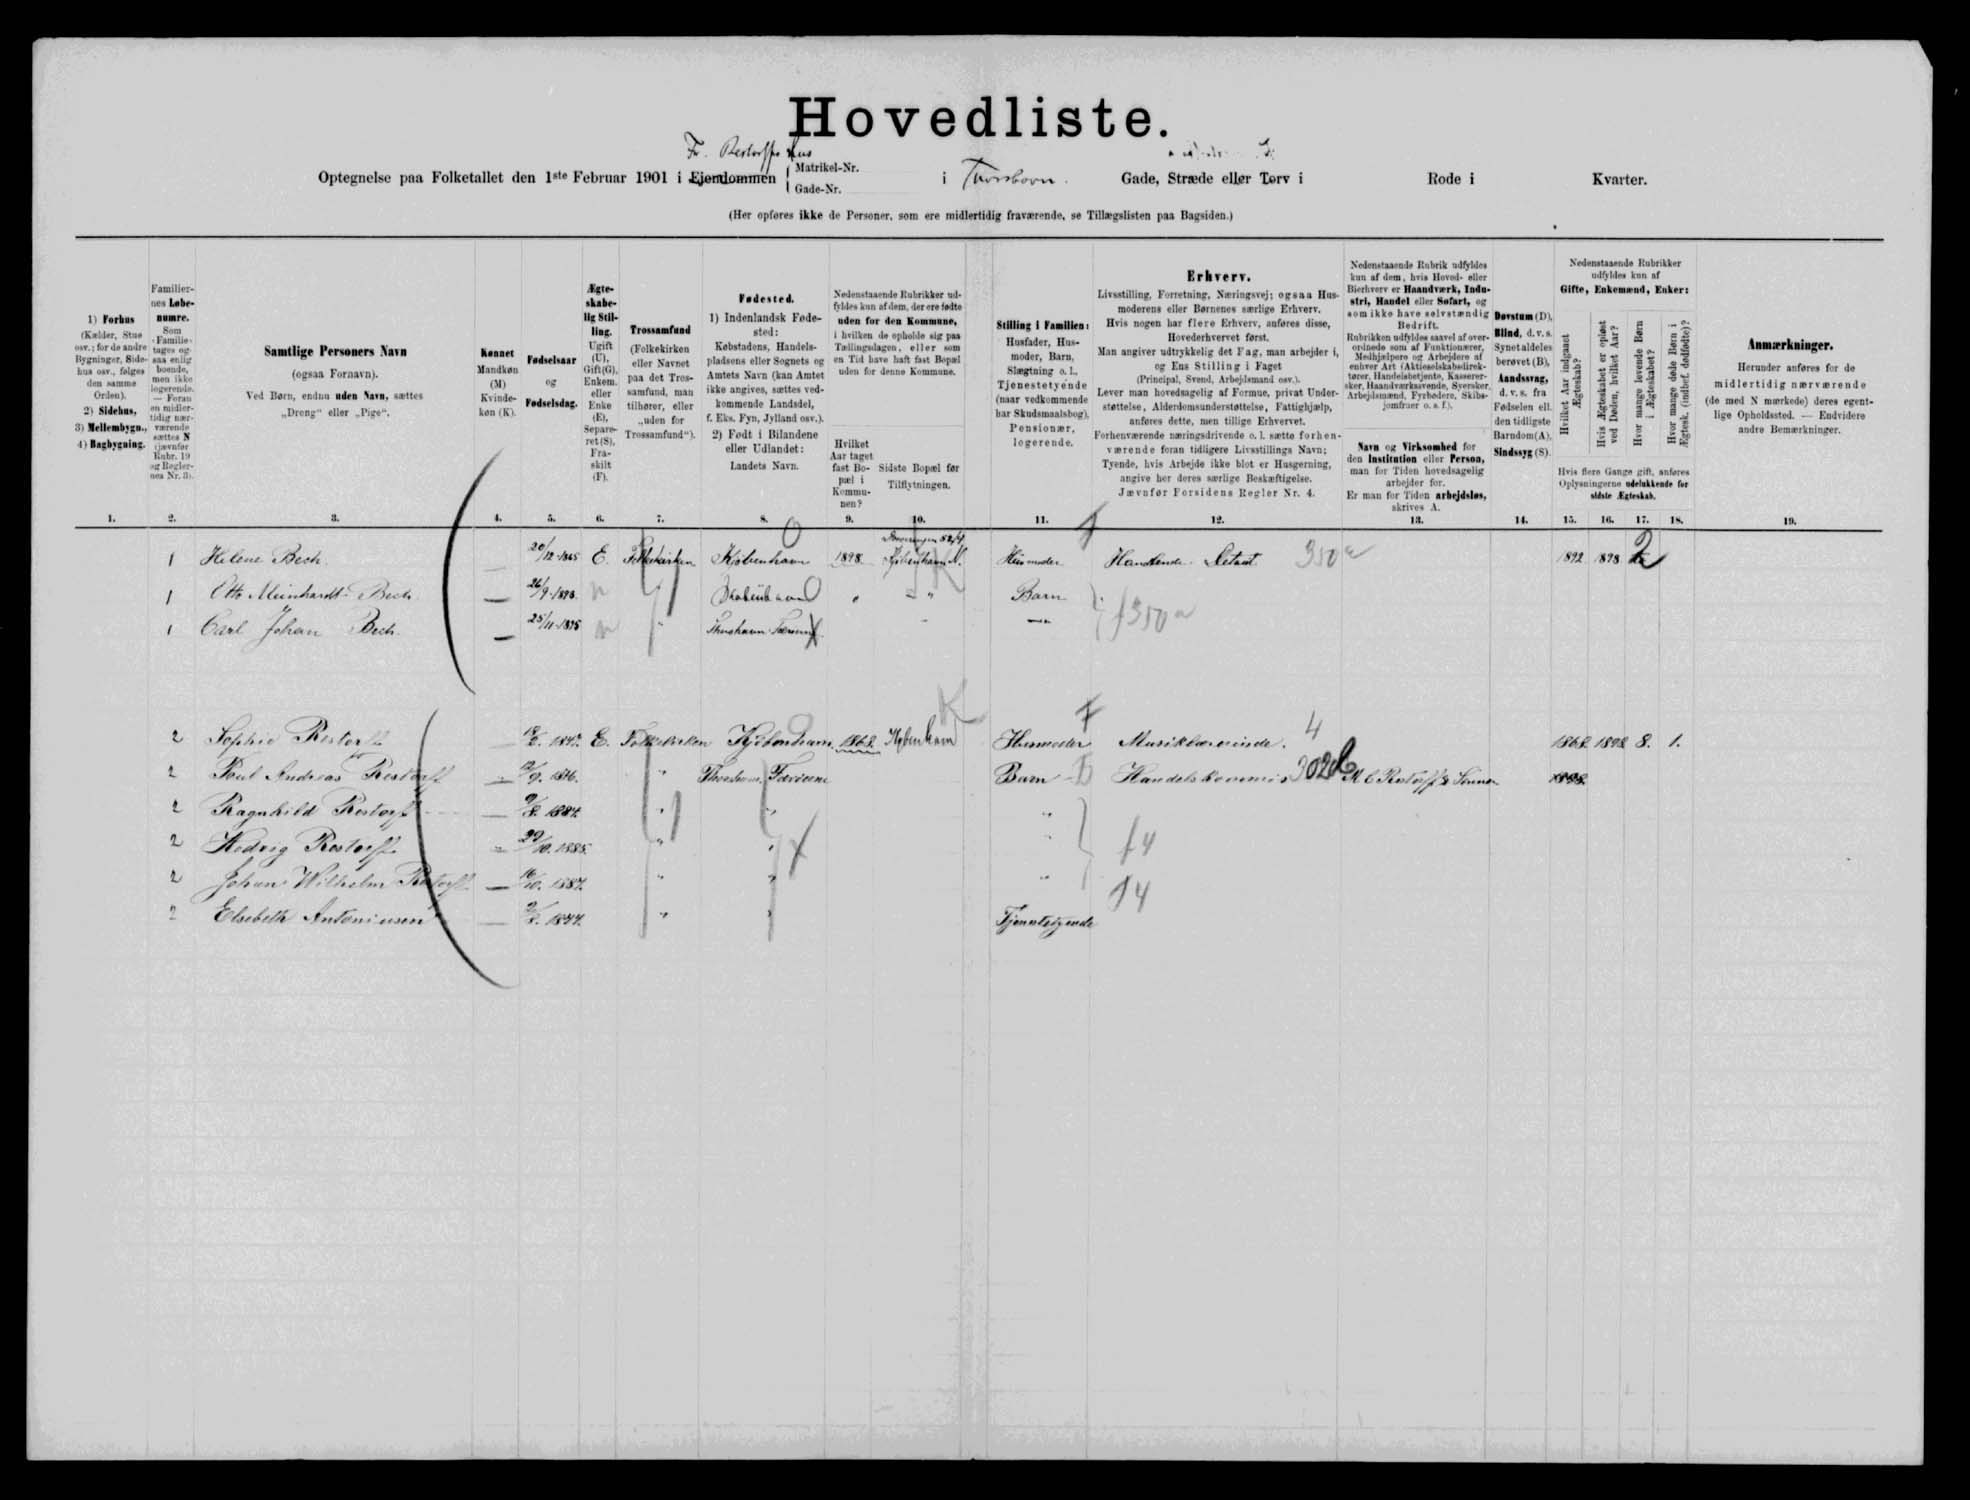 Hovedliste.
Fr. Restorffs Hus
Optegnelse paa Folketallet den 1ste Februar 1901 i Ejendommen { Matrikel-Nr. Gade-Nr. i Thorshavn. Gade, Stræde eller Torv i Rode i Kvarter.
(Her opføres ikke de Personer, som ere midlertidig fraværende, se Tillægslisten paa Bagsiden.)
1) Forhus (Kælder, Stue osv.; for de andre Bygninger, Sidehus osv., følges den samme Orden). 2) Sidehus, 3) Mellembygn., 4) Bagbygning.
Familiernes Løbenumre. Som Familie tages ogsaa enlig boende, men ikke logerende. — Foran en midlertidig nærværende sættes N (jævnfør Rubr. 19 og Reglernes Nr. 3).
Samtlige Personers Navn (ogsaa Fornavn). Ved Børn, endnu uden Navn, sættes „Dreng“ eller „Pige“.
Kønnet Mandkøn (M) Kvindekøn (K).
Fødselsaar og Fødselsdag.
Ægteskabelig Stilling. Ugift (U), Gift (G), Enkem. eller Enke (E), Separeret (S), Fraskilt (F).
Trossamfund (Folkekirken eller Navnet paa det Trossamfund, man tilhører, eller „uden for Trossamfund“).
Fødested. 1) Indenlandsk Fødested: Købstadens, Handelspladsens eller Sognets og Amtets Navn (kan Amtet ikke angives, sættes vedkommende Landsdel, f. Eks. Fyn, Jylland osv.). 2) Født i Bilandene eller Udlandet: Landets Navn.
Nedenstaaende Rubrikker udfyldes kun af dem, der ere fødte uden for den Kommune, i hvilken de opholde sig paa Tællingsdagen, eller som en Tid have haft fast Bopæl uden for denne Kommune.
Hvilket Aar taget fast Bopæl i Kommunen?
Sidste Bopæl før Tilflytningen.
Stilling i Familien: Husfader, Husmoder, Barn, Slægtning o. l., Tjenestetyende (naar vedkommende har Skudsmaalsbog), Pensionær, logerende.
Erhverv.
Livsstilling, Forretning, Næringsvej; ogsaa Husmoderens eller Børnenes særlige Erhverv.
Hvis nogen har flere Erhverv, anføres disse, Hovederhvervet først.
Man angiver udtrykkelig det Fag, man arbejder i, og Ens Stilling i Faget (Principal, Svend, Arbejdsmand osv.).
Lever man hovedsagelig af Formue, privat Understøttelse, Alderdomsunderstøttelse, Fattighjælp, anføres dette, men tillige Erhvervet.
Forhenværende næringsdrivende o. l. sætte forhenværende foran tidligere Livsstillings Navn; Tyende, hvis Arbejde ikke blot er Husgerning, angive her deres særlige Beskæftigelse.
Jævnfør Forsidens Regler Nr. 4.
Nedenstaaende Rubrik udfyldes kun af dem, hvis Hoved- eller Bierhverv er Haandværk, Industri, Handel eller Søfart, og som ikke have selvstændig Bedrift.
Rubrikken udfyldes saavel af overordnede som af Funktionærer, Medhjælpere og Arbejdere af enhver Art (Aktieselskabsdirektører, Handelsbetjente, Kasserersker, Haandværkssvende, Syersker, Arbejdsmænd, Fyrbødere, Skibsjomfruer o. s. f.).
Navn og Virksomhed for den Institution eller Person, man for Tiden hovedsagelig arbejder for.
Er man for Tiden arbejdsløs, skrives A.
Døvstum (D), Blind, d. v. s. Synet aldeles berøvet (B), Aandssvag, d. v. s. fra Fødselen ell. den tidligste Barndom (A), Sindssyg (S).
Nedenstaaende Rubrikker udfyldes kun af Gifte, Enkemænd, Enker:
Hvilket Aar indgaaet Ægteskab?
Hvis Ægteskabet er opløst ved Døden, hvilket Aar?
Hvor mange levende Børn i Ægteskabet?
Hvor mange døde Børn i Ægtesk. (indbef. dødfødte)?
Hvis flere Gange gift, anføres Oplysningerne udelukkende for sidste Ægteskab.
Anmærkninger.
Herunder anføres for de midlertidig nærværende (de med N mærkede) deres egentlige Opholdssted. — Endvidere andre Bemærkninger.
1. 2. 3. 4. 5. 6. 7. 8. 9. 10. 11. 12. 13. 14. 15. 16. 17. 18. 19.
1 Helene Bech. — 20/12-1865 E. Folkekirken Kjøbenhavn 1898 Kjøbenhavn N. Husmoder Handlende 350 1892 1898 2
1 Otto Meinhardt Bech — 26/9-1893. " " — " Barn
1 Carl Johan Bech. — 25/11-1895 " Thorshavn Færøerne — f350
2 Sophie Restorff 1842 E. Folkekirken Kjøbenhavn 1868. Kjøbenhavn Husmoder Musiklærerinde. 4 1868 1898 8. 1.
2 Poul Andreas Restorff — 12/9. 1876. " Thorshavn, Færøerne Barn Handelskommis 302 M. C. Restorff & Sønner
2 Ragnhild Restorff — 9/8. 1884. " " "
2 Hedvig Restorff — 29/10. 1885. " " f4
2 Johan Wilhelm Restorff — 16/10. 1887. " " "
2 Elsebeth Antoniusen — 2/8. 1844. " " Tjenestetyende f4